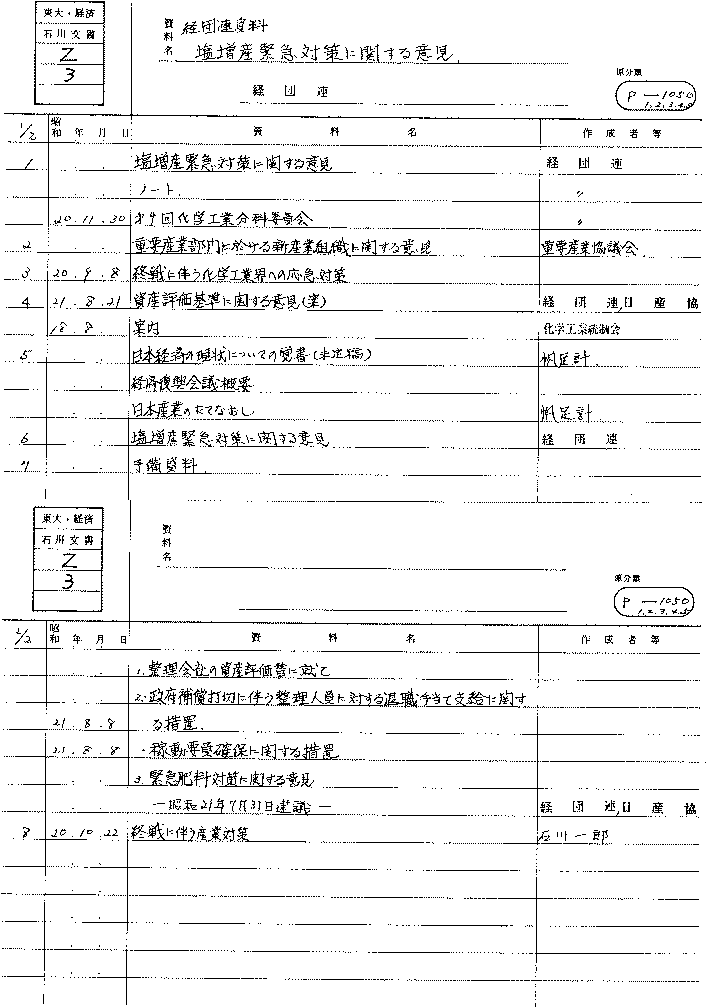 東大・経済
石川文書
Z
3
資料名 経団連資料
塩増産緊急対策に関する意見
経団連
原分類
P-1050
1.2.3.4.5
1/2 昭和 年 月 日 資料名 作成者等
1 塩増産緊急対策に関する意見 経団連
ノート 〃
20.11.30 才9回化学工業分科委員会 〃
2 重要産業部内に於ける新産業組織に関する意見 重要産業協議会
3 20.9.8 終戦に伴う化学工業界への応急対策
4 21.8.21 資産評価基準に関する意見(案) 経団連,日産協
18.8. 案内 化学工業統制会
5 日本経済の現状についての覚書(未定稿) 帆足計
経済復興会議概要
日本産業のたてなおし 帆足計
6 塩増産緊急対策に関する意見 経団連
7 予備資料
東大・経済
石川文書
Z
3
資料名
原分類
P-1050
1.2.3.4.5
2/2 昭和 年 月 日 資料名 作成者等
1.整理会社の資産評価替に就て
2.政府補償打切に伴う整理人員に対する退職手当て支給に関す
21.8.8 る措置
21.8.8 ・稼動要員確保に関する措置
3.緊急肥料対策に関する意見
―昭和21年7月31日建議― 経団連,日産協
8 20.10.22 終戦に伴う産業対策 石川一郎